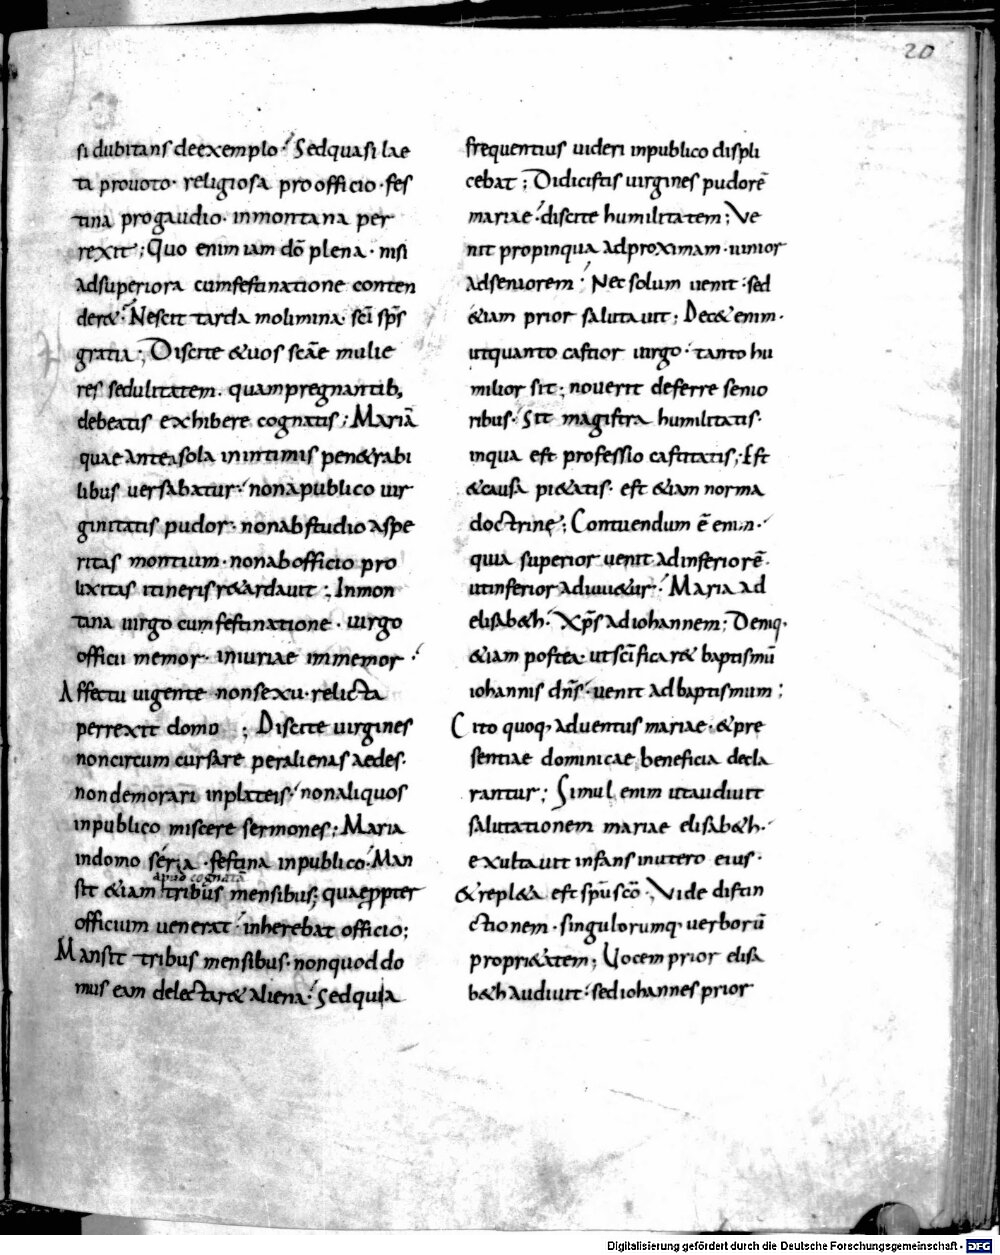 20
si dubitans de exemplo; Sed quasi lae
ta pro uoto· religiosa pro officio· fes
tina pro gaudio· in montana per
rexit; Quo enim iam dō plena· nisi
ad superiora cum festinatione conten
der&; Nescit tarda molimina· sc̄i sp̄s
gratia; Discite &uos sc̄ae mulie
res sedulitatem· quam pregnantib;
debeatis exhibere cognatis; Mariā
quae antea sola in intimis pen&rabi
libus uersabatur; non a publico uir
ginitatis pudor· non ab studio aspe
ritas montium· non ab officio pro
lixitas itineris r&ardauit; In mon
tana uirgo cum festinatione· uirgo
officii memor· iniuriae immemor·
Affectu uigente non sexu· relicta
perrexit domo; Discite uirgines
non circum cursare per alienas aedes·
non demorari in plateis; non aliquos
in publico miscere sermones; Maria
in domo seria· festina in publico; Man
apud cognatā
sit &iam tribus mensibus; quae ppter
officium uenerat; inherebat officio;
Mansit tribus mensibus· non quod do
mus eam delectar& aliena; Sed quia
frequentius uideri in publico displi
cebat; Didicistis uirgines pudorē
mariae; discite humilitatem; Ve
nit propinqua ad proximam· iunior
ad seniorem; Nec solum uenit; sed
&iam prior salutauit; Dec& enim·
ut quanto castior uirgo; tanto hu
milior sit; nouerit deferre senio
ribus; Sit magistra humilitatis·
in qua est professio castitatis; Est
& causa pi&atis· est &iam norma
doctrinę; Contuendum ē enim·
quia superior uenit ad inferiorē·
ut inferior adiuu&ur; Maria ad
elisab&h; Xp̄s ad iohannem; Deniq·
&iam postea· ut sc̄ificar& baptismū
iohannis dn̄s· uenit ad baptismum;
Cito quoq· aduentus mariae· & pre
sentiae dominicae beneficia decla
rantur; Simul enim ut audiuit
salutationem mariae elisab&h·
exultauit infans in utero eius·
& repl&a est sp̄u sc̄o; Vide distin
ctionem· singulorumq· uerborū
propri&atem; Uocem prior elisa
b&h audiuit; sed iohannes prior
Digitalisierung gefördert durch die Deutsche Forschungsgemeinschaft - DFG